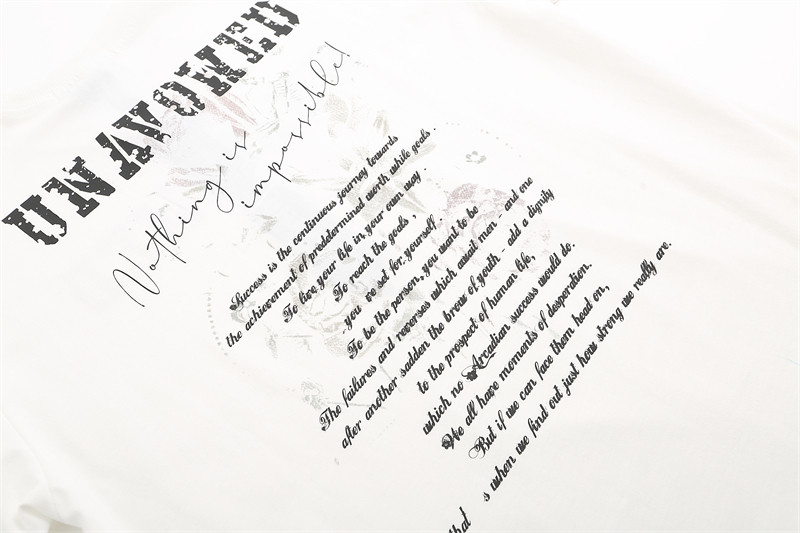 UNAVOWED
Nothing is
impossible!
Success is the continuous journey towards
the achievement of predetermined worth while goals.
To live your life in your own way.
To reach the goals,
you ve set for yourself.
To be the person, you want to be
The failures and reverses which await men - and one
after another sadden the brow of youth - add a dignity
to the prospect of human life,
which no Arcadian success would do.
We all have moments of desperation.
But if we can face them head on,
that s when we find out just how strong we really are.